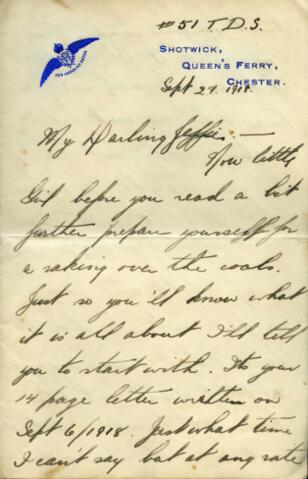 #51 T.D.S.
SHOTWICK,
QUEEN'S FERRY,
CHESTER.
Sept 27. 1918.
My Darling Jeffie: —
Now little
Girl before you read a bit
further prepare yourself for
a raking over the coals.
Just so you'll know what
it is all about I'll tell
you to start with. Its your
14 page letter written on
Sept 6/1918. Just what time
I can't say but at any rate